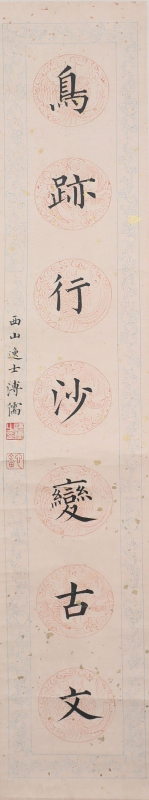 鳥跡行沙變古文
西山逸士溥儒